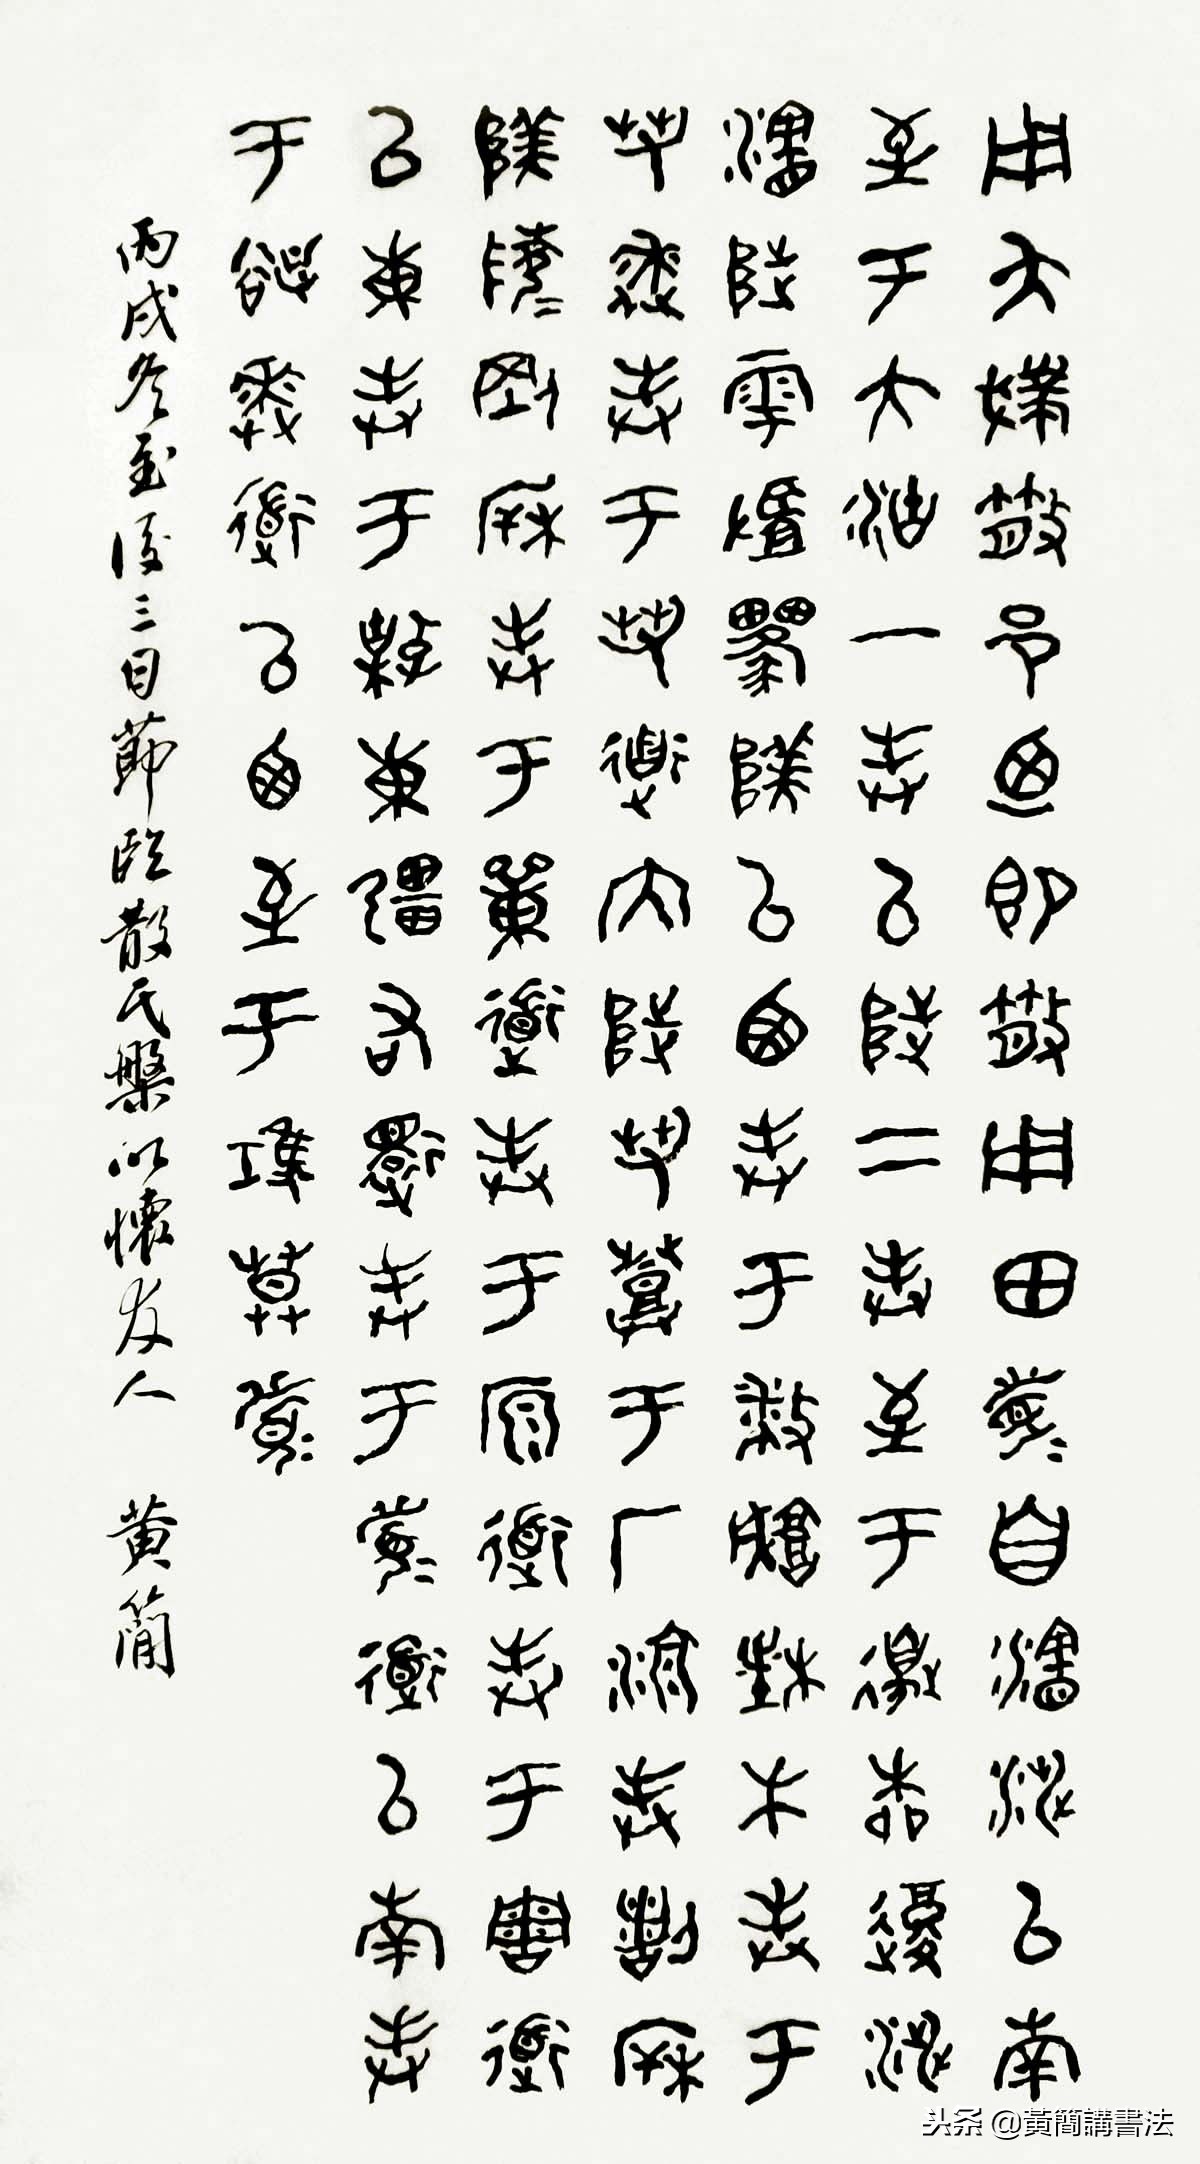 用夨𢾭散邑廼即散用田眉自瀗涉以南
至于大沽一封以陟二封至于邊柳復涉
瀗陟雩𠭯𨻎以西封于播城楮木封于
芻逨封于芻道內陟芻登于厂湶封㭁
𨻎陵剛㭁封于嘼道封于原道封于周道
以東封于𣓤東疆右還封于眉道以南封
于𥻆逨道以西至于鴻莫眉
丙戌冬至後三日節臨散氏盤以懷友人 黃簡
头条 @黃簡講書法